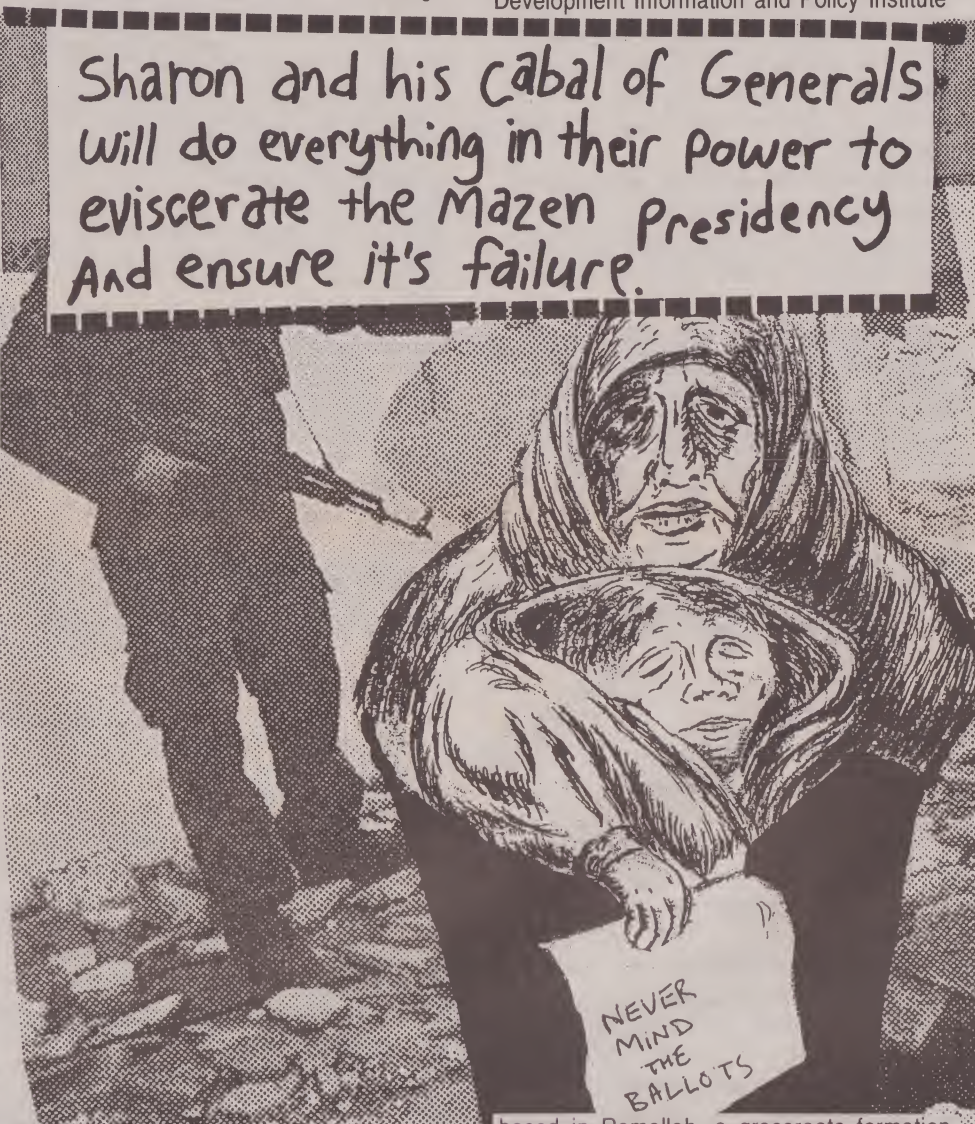 Development Information and Policy Institute
Sharon and his cabal of Generals
will do everything in their power to
eviscerate the Mazen Presidency
And ensure it's failure.
NEVER
MIND
THE
BALLOTS
based in Ramallah, a grassroots formation